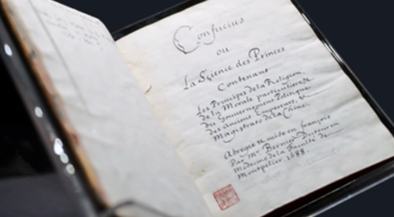 Confucius
ou
La Science des Princes
Contenant
Les Principes de la Religion,
de la Morale particuliere,
du Gouvernement Politique
des Anciens Empereurs, et
Magistrats de la Chine.
Abregée et mise en françois
Par Mr Bernier Docteur en
Medecine de la Faculté de
Montpelier. 1688.